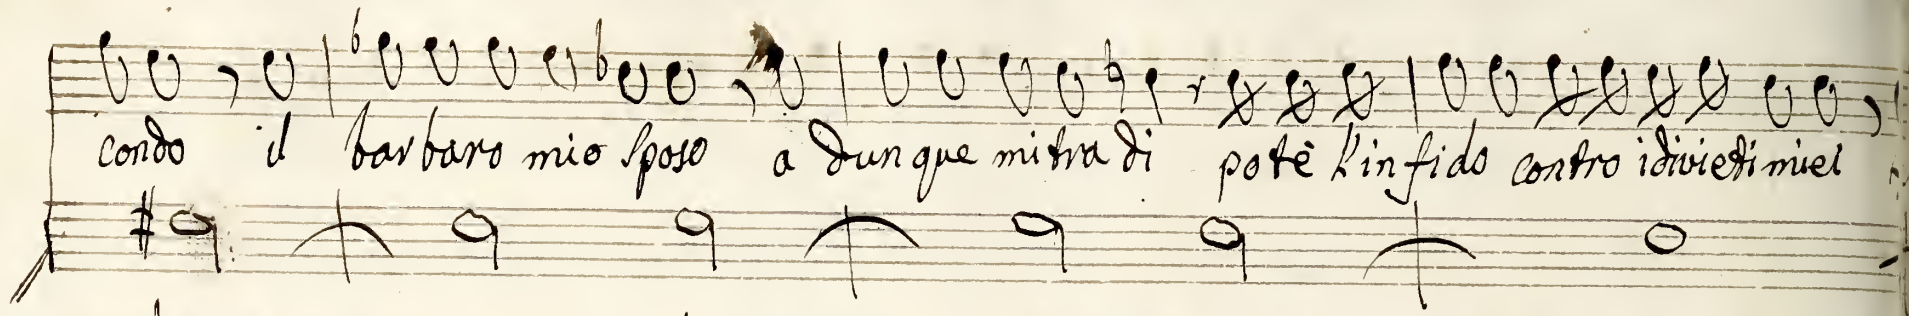 condo il barbaro mio sposo a dunque mitra di potè l'infido contro i divieti miei